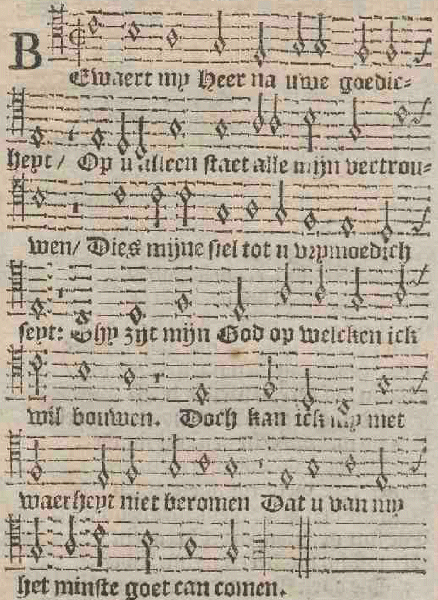 BEwaert my Heer na uwe goedic-
heyt / Op u alleen staet alle mijn vertrou-
wen / Dies mijne siel tot u vrymoedich
seyt: Ghy zijt mijn God op welcken ick
wil bouwen. Doch kan ick my met
waerheyt niet beromen Dat u van my
het minste goet can comen.